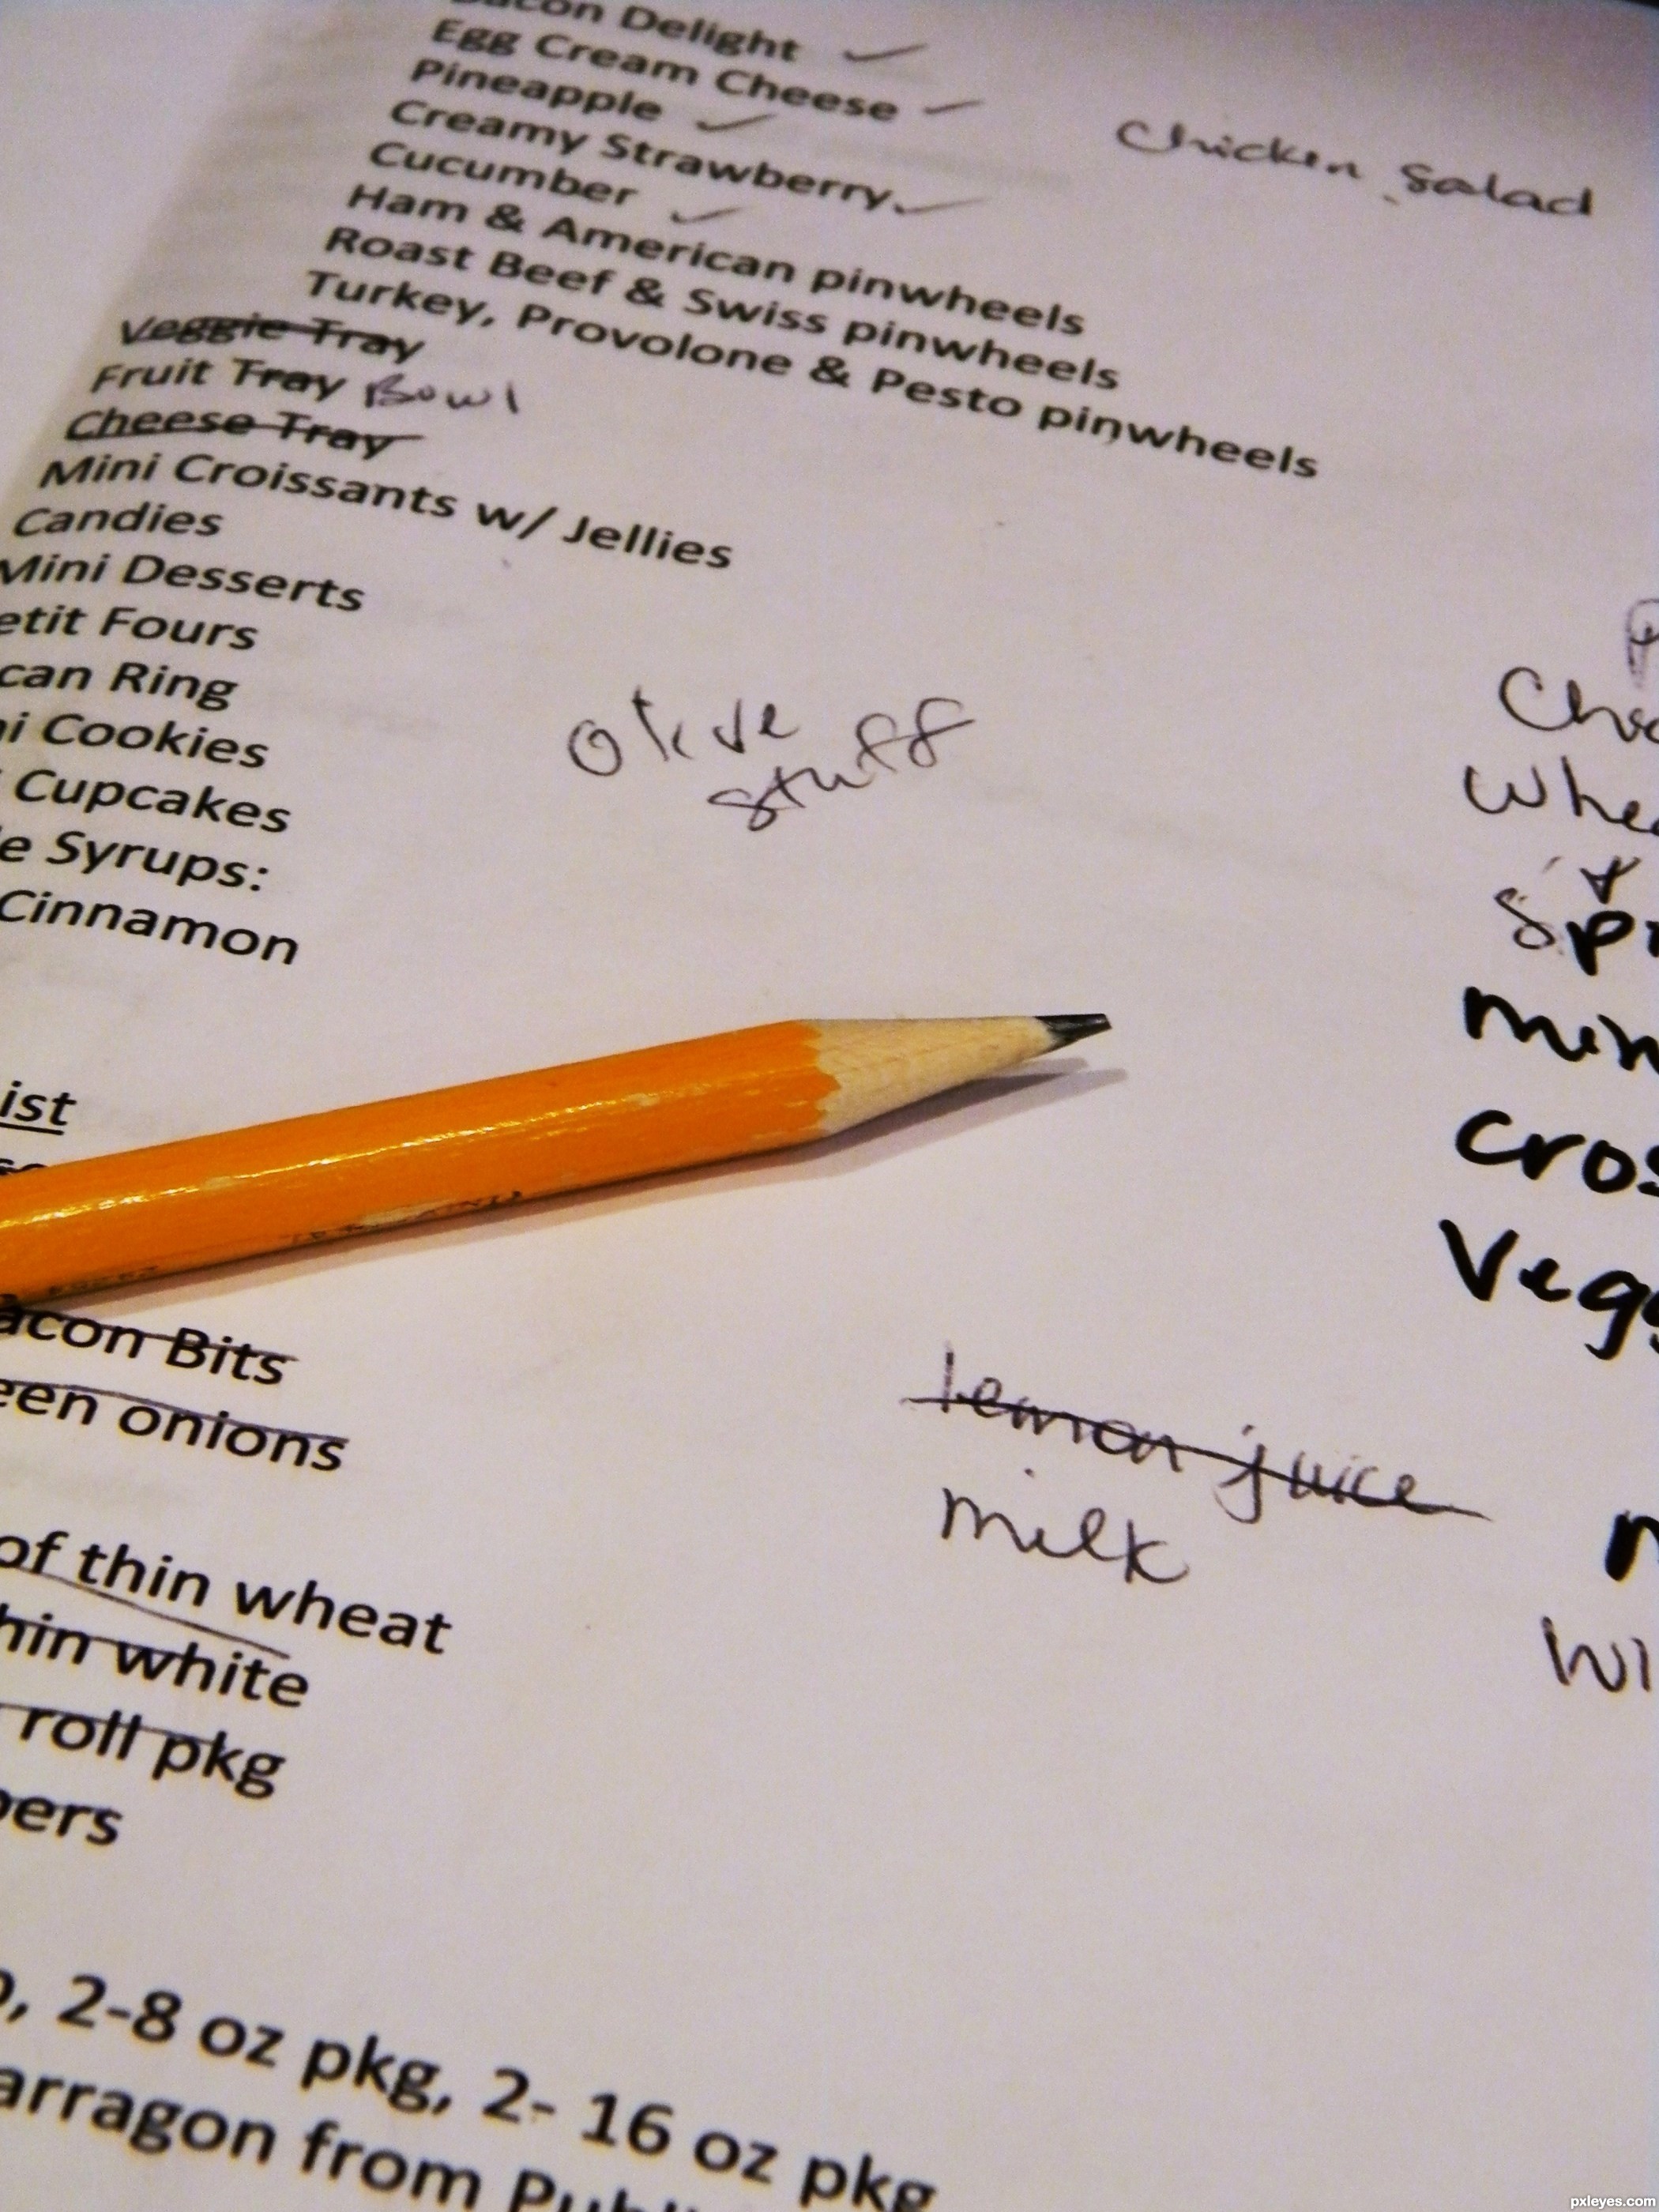 Delight
Egg Cream Cheese
Pineapple
Creamy Strawberry
Cucumber
Ham & American pinwheels
Roast Beef & Swiss pinwheels
Turkey, Provolone & Pesto pinwheels
Chicken Salad
Veggie Tray
Fruit Tray Bowl
Cheese Tray
Mini Croissants w/ Jellies
Candies
Mini Desserts
etit Fours
can Ring
Cookies
Cupcakes
Syrups:
Cinnamon
Olive
stuff
ist
acon Bits
een onions
of thin wheat
hin white
roll pkg
bers
2-8 oz pkg, 2- 16 oz pkg
arragon from Publi
Cho
Whea
&
Spi
min
cros
Vegg
lemon juice
milk
pxleyes.com